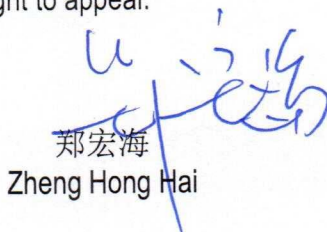 ght to appeal.
郑宏海
Zheng Hong Hai